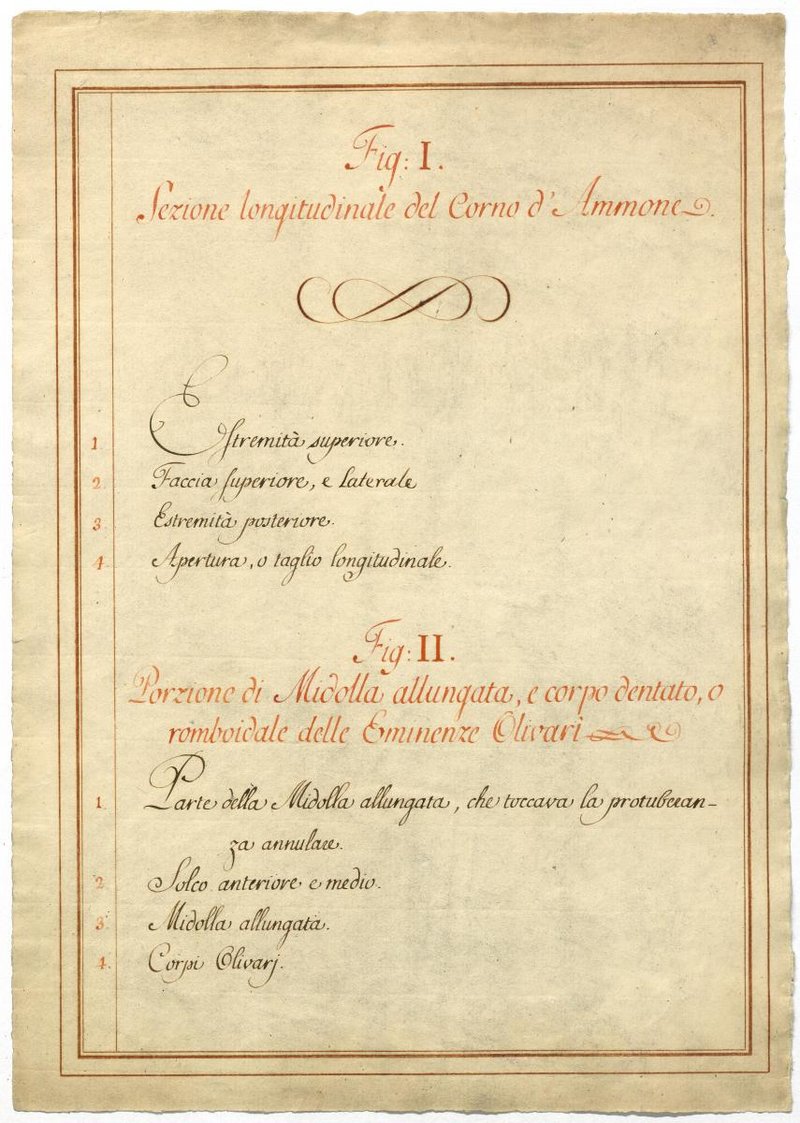 Fig: I.
Sezione longitudinale del Corno d'Ammone.
1. Estremità superiore.
2. Faccia superiore, e laterale
3. Estremità posteriore.
4. Apertura, o taglio longitudinale.
Fig: II.
Porzione di Midolla allungata, e corpo dentato, o
romboidale delle Eminenze Olivari
1. Parte della Midolla allungata, che toccava la protuberan-
za annulare.
2. Solco anteriore e medio.
3. Midolla allungata.
4. Corpi Olivarj.